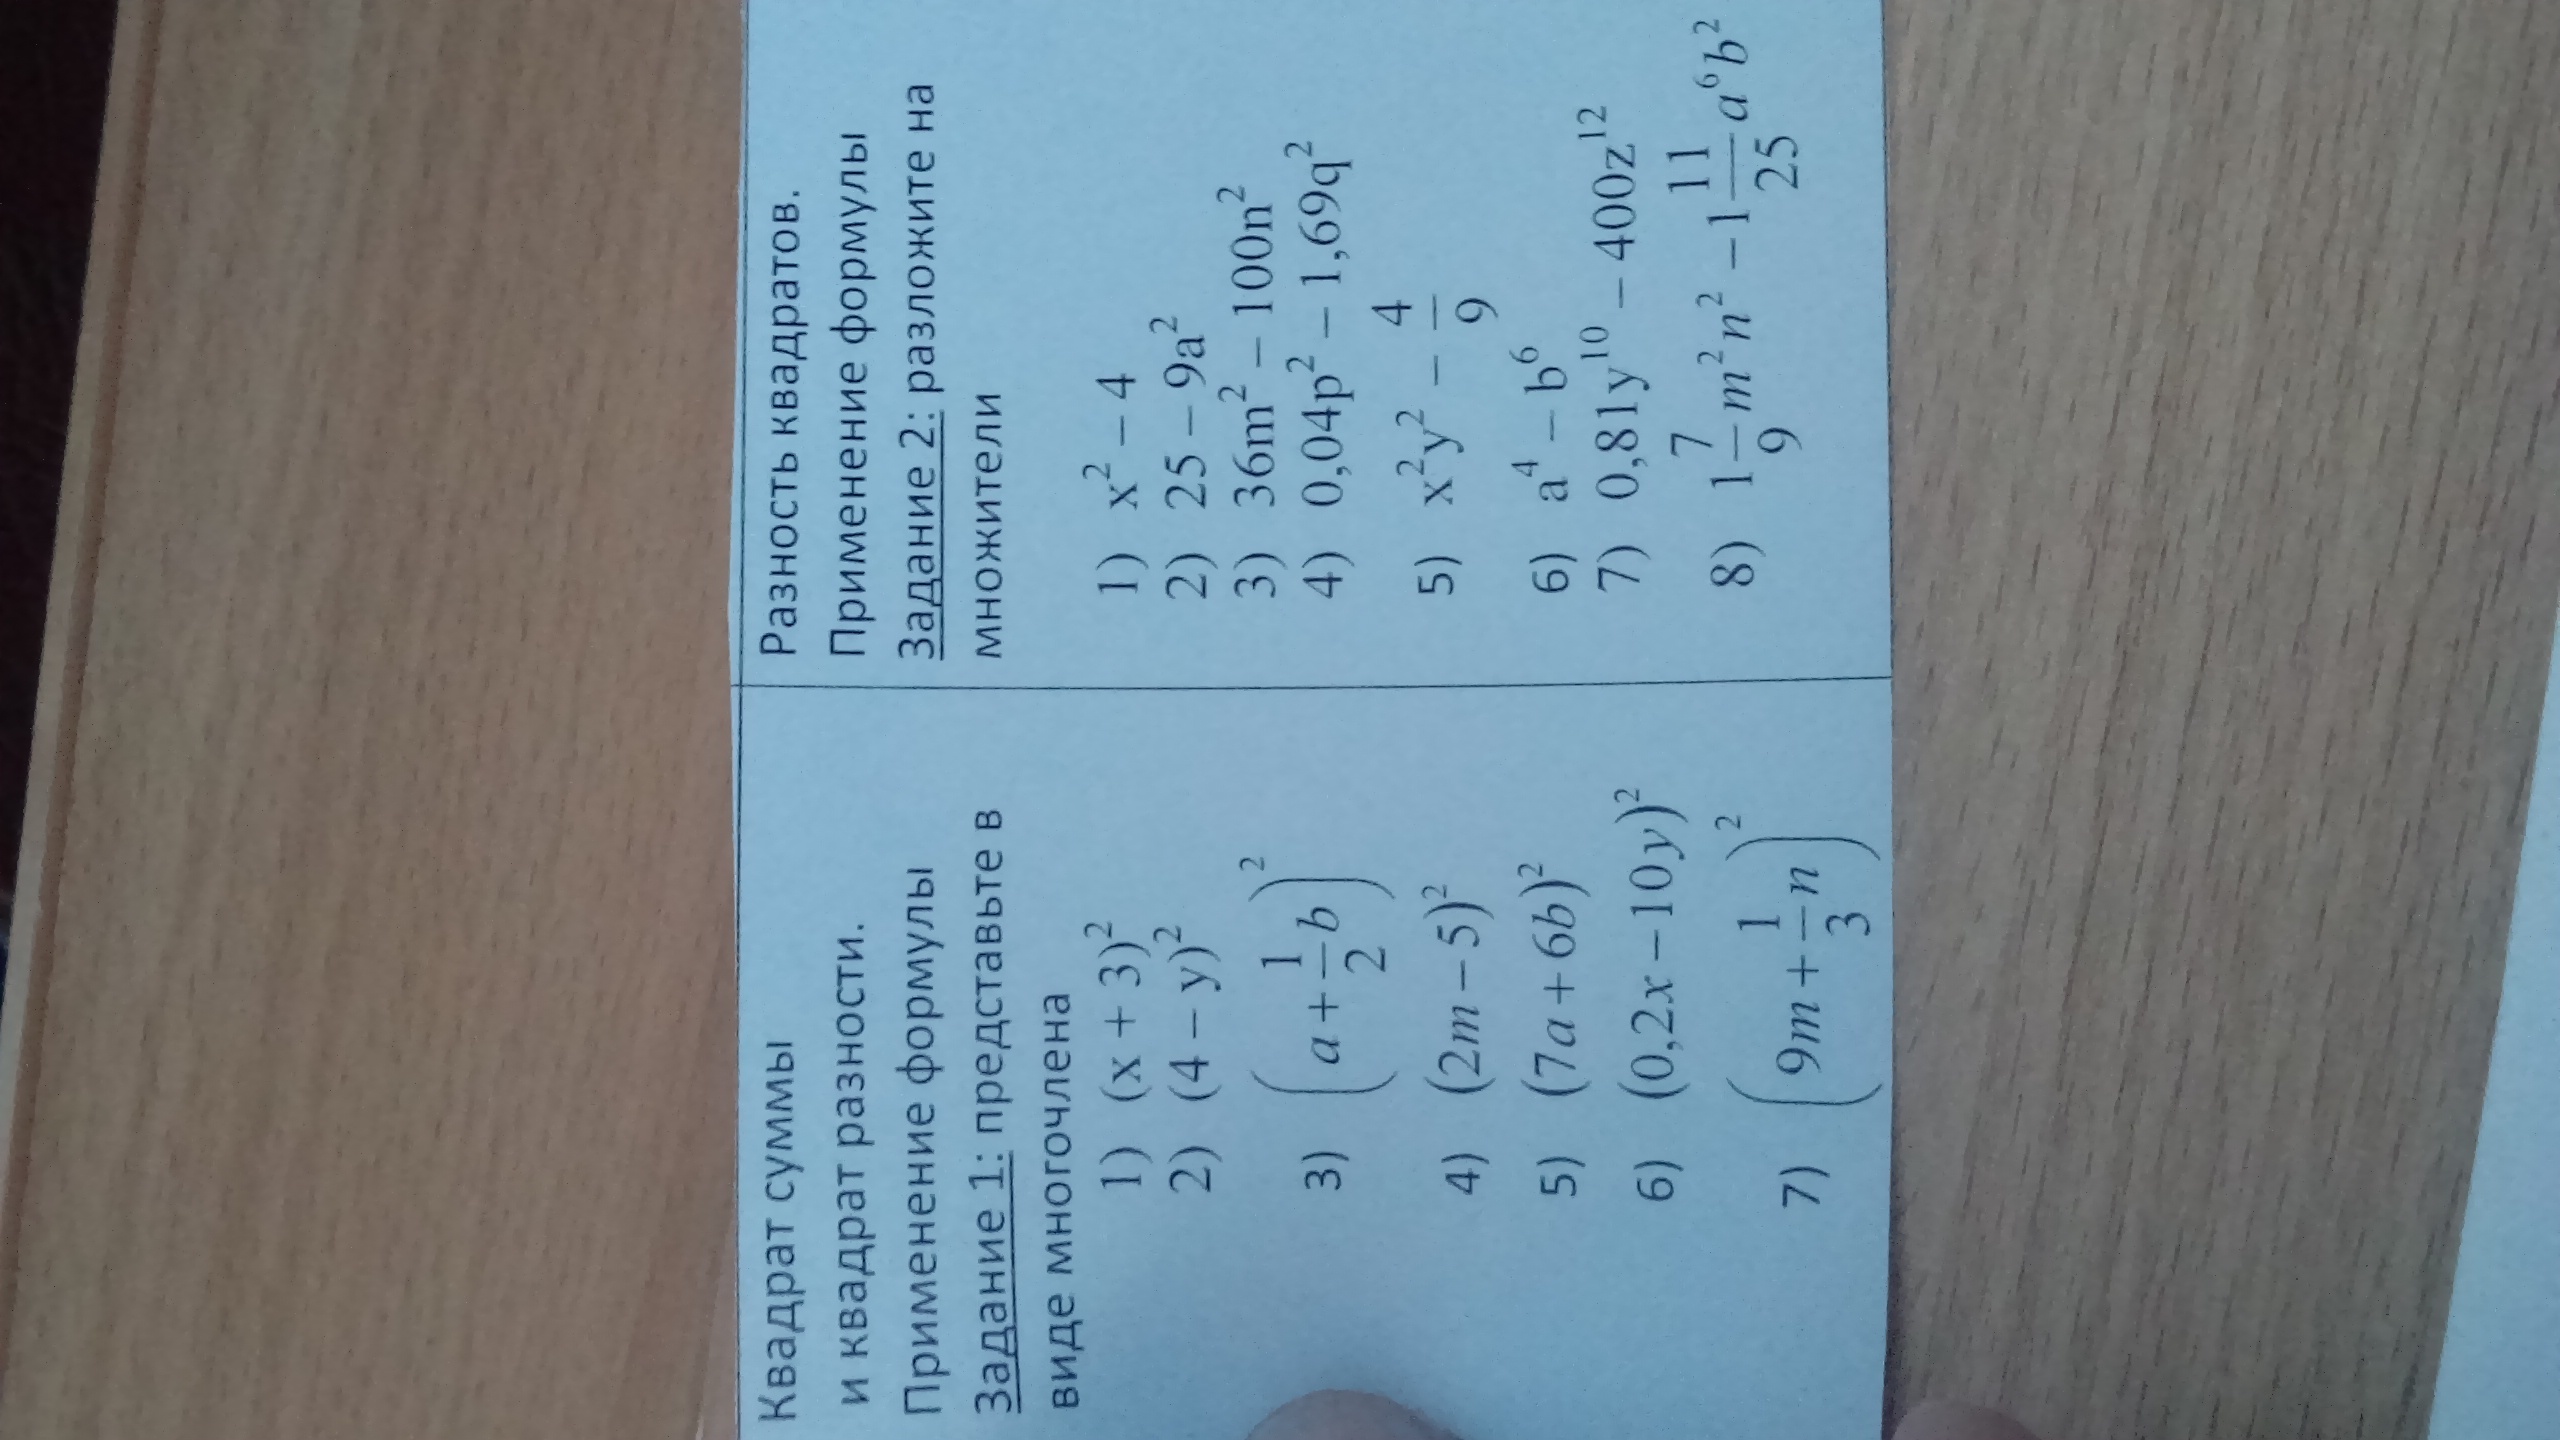 Квадрат суммы
и квадрат разности.
Применение формулы
Задание 1: представьте в
виде многочлена
1) (x + 3)²
2) (4 − y)²
3) (a + 1/2 b)²
4) (2m − 5)²
5) (7a + 6b)²
6) (0,2x − 10y)²
7) (9m + 1/3 n)²
Разность квадратов.
Применение формулы
Задание 2: разложите на
множители
1) x² − 4
2) 25 − 9a²
3) 36m² − 100n²
4) 0,04p² − 1,69q²
5) x²y² − 4/9
6) a⁴ − b⁶
7) 0,81y¹⁰ − 400z¹²
8) 1 7/9 m²n² − 1 11/25 a⁶b²